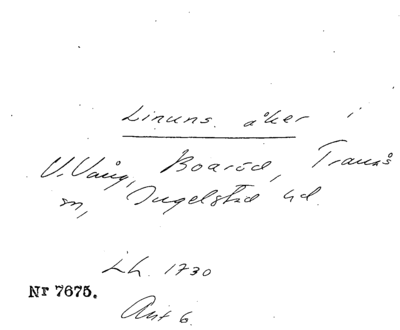 Linuns åker i
V. Vång, Boaröd, Tranås
sn, Ingelstad hd.
Lh. 1730
Nr 7675.
Akt 6.